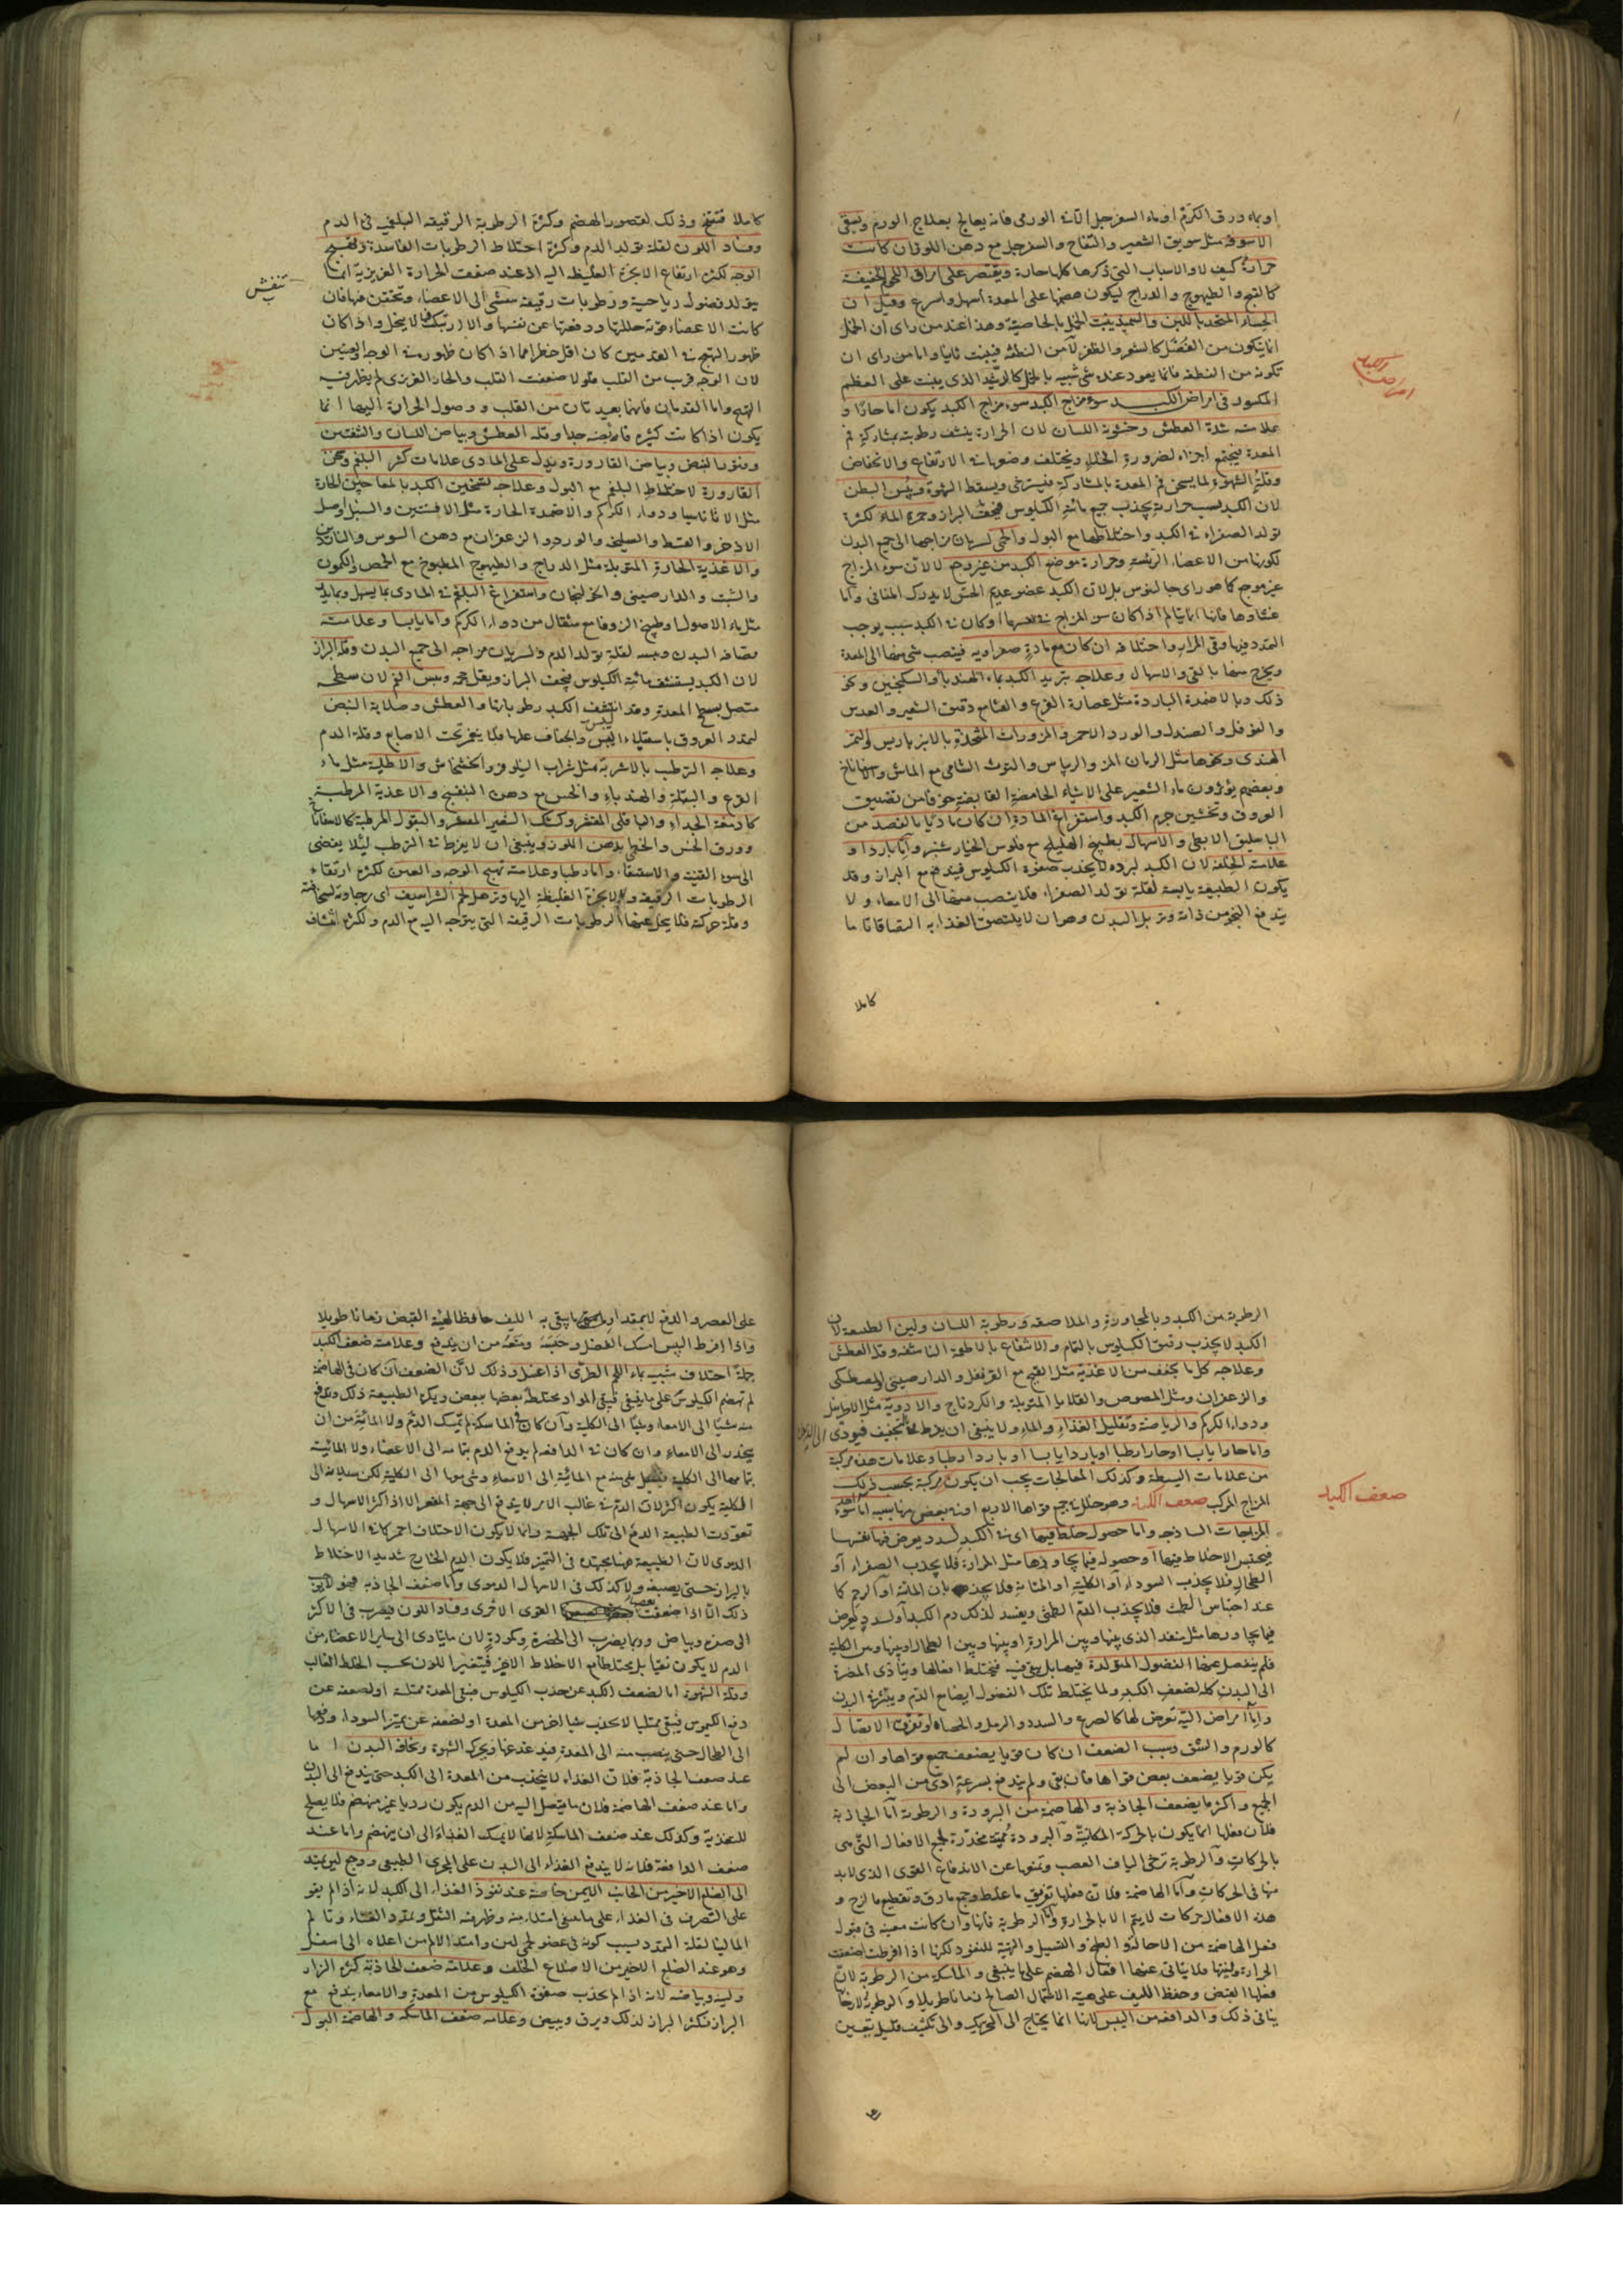 او بماء ورق الكرم او ماء السفرجل الثانى الورمى فانه يعالج بعلاج الورم ويسقى
الاسوقة مثل سويق الشعير والتفاح والسفرجل مع دهن اللوز ان كانت
حرارة كيف لا والاسباب التى ذكرها كلها حارة ويقتصر على مراق اللحم الخفيفة
كالقبج والطيهوج والدراج ليكون هضمها على المعدة اسهل واسرع وقيل ان
الحساء المتخذ باللبن والسميد ينبت الخمل بالخاصية وهذا عند من راى ان الخمل
انما يتكون من الفضل كالشعر والظفر لا من النطفة فينبت ثانيا واما من راى ان
تكونه من النطفة فانما يعود عنده شى شبيه بالخمل كالدشبد الذى ينبت على العظم
امراض الكبد
المكسور فى امراض الكبد سوء مزاج الكبد سوء مزاج الكبد يكون اما حارا و
علامته شدة العطش وخشونة اللسان لان الحرارة ينشف رطوبته بمشاركة فم
المعدة فيجتمع اجزاءه لضرورة الخلاء ويختلف وضعها فى الارتفاع والانخفاض
وقلة الشهوة لما يسخن فم المعدة بالمشاركة فيسترخى ويسقط الشهوة ويبس البطن
لان الكبد بسبب حرارته يجذب جميع مائية الكيلوس فيجف البراز وحمرة الماء لكثرة
تولد الصفراء فى الكبد واختلاطها مع البول والحمى لسريان مزاجها الى جميع البدن
لكونها من الاعضاء الرئيسة وحرارة موضع الكبد من غير وجع لا لان سوء المزاج
غير موجع كما هو راى جالينوس بل لان الكبد عضو عديم الحس لا يدرك المنافى واما
غشاوها فانها انما يتالم اذا كان سوء المزاج فى نفسها او كان فى الكبد سبب يوجب
التمدد فيها وقى المرار واختلافه ان كان مع مادة صفراوية فينصب شى منها الى المعدة
ويخرج منها بالقى والاسهال وعلاجه تبريد الكبد بماء الهندباء والسكنجبين ونحو
ذلك وبالاضمدة الباردة مثل عصارة القرع والقثا مع دقيق الشعير والعدس
والفوفل والصندل والورد الاحمر والمزورات المتخذة بالانبرباريس والتمر
الهندى ونحوها مثل الرمان المز والريباس والتوث الشامى مع الماش والاسفاناخ
وبعضهم يؤثرون ماء الشعير على الاشياء الحامضة القابضة خوفا من تضييق
العروق وتخشين جرم الكبد واستفراغ المادة ان كان ماديا بالفصد من
الباسليق الابطى والاسهال بطبيخ الهليلج مع فلوس الخيار شنبر واما باردا و
علامته الخلفة لان الكبد لبرده لا يجذب صفوة الكيلوس فيندفع مع البراز وقد
يكون الطبيعة يابسة لقلة تولد الصفراء فلا ينصب منها الى الامعاء ولا
يندفع النجو من ذاته وتربل البدن وهو ان لا يلتصق الغذاء به التصاقا تاما
كاملا
كاملا فينتفخ وذلك لقصور الهضم وكثرة الرطوبة الرقيقة البلغمية فى الدم
وفساد اللون لقلة تولد الدم وكثرة اختلاط الرطوبات الفاسدة وتهيج
الوجه لكثرة ارتفاع الابخرة الغليظة اليه اذ عند ضعف الحرارة الغريزية انما
تنفش
يتولد فضول رياحية ورطوبات رقيقة ينتشى الى الاعضاء وتحتقن فيها فان
كانت الاعضاء قوية حللتها ودفعتها عن نفسها والا ارتبكت فيها لا يخل واذا كان
ظهور التهيج فى القدمين كان اقل خطرا مما اذا كان ظهوره فى الوجه والعينين
لان الوجه قريب من القلب فلولا ضعف القلب والحار الغريزى لم يظهر فيه
التهيج واما القدمان فانهما بعيدتان من القلب ووصول الحرارة اليهما انما
يكون اذا كانت كثيرة فائضة جدا وقلة العطش وبياض اللسان والشفتين
وفتور النبض وبياض القارورة ويدل على المادى علامات كثرة البلغم وثخن
القارورة لاختلاط البلغم مع البول وعلاجه تسخين الكبد بالمعاجين الحارة
مثل الاثاناسيا ودواء الكركم والاضمدة الحارة مثل الافسنتين والسنبل واصل
الاذخر والقسط والسليخة والورد والزعفران مع دهن السوس والناردين
والاغذية الحارة المتوبلة مثل الدراج والطيهوج المطبوخ مع الحمص والكمون
والشبت والدارصينى والخولنجان واستفراغ البلغم فى المادى بما يسهل وبما يدر
مثل ماء الاصول وطبيخ الزوفا مع مثقال من دواء الكركم واما يابسا وعلامته
قضافة البدن ويبسه لقلة تولد الدم ولسريان مزاجه الى جميع البدن وقلة البراز
لان الكبد يستنشف مائية الكيلوس فيجف البراز ويقل حجمه ويبس الفم لان سطحه
متصل بسطح المعدة وقد انتشف الكبد رطوباتها والعطش وصلابة النبض
لتمدد العروق باستيلاء اليبس والجفاف عليها فلا ينغمز تحت الاصابع وقلة الدم
وعلاجه الترطب بالاشربة مثل شراب النيلوفر والخشخاش والاطلية مثل ماء
القرع والبقلة والهندباء والخس مع دهن البنفسج والاغذية المرطبة
كادمغة الجداء والباقلى المقشر وكشك الشعير المقشر والبقول المرطبة كالاسفاناخ
وورق الخس والخطمى بدهن اللوز وينبغى ان لا يفرط فى الترطب ليلا يفضى
الى سوء القنية والاستسقاء واما رطبا وعلامته تهيج الوجه والعين لكثرة ارتقاء
الرطوبات الرقيقة والابخرة الغليظة اليها وترهل لحم الشراسيف اى رخاوته لسخافته
وقلة حركته فلا يحل عنها الرطوبات الرقيقة التى يتوجه اليه مع الدم ولكثرة انتشاف
الرطوبة من الكبد وبالمجاورة والملاصقة ورطوبة اللسان ولين الطبيعة لان
الكبد لا يجذب رقيق الكيلوس بالتمام والانتفاع بالاطعمة الناشفة وقلة العطش
وعلاجه كل ما يجفف من الاغذية مثل القبج مع القرنفل والدارصينى والمصطكى
والزعفران ومثل المصوص والقلايا المتوبلة والكردناج والادوية مثل الاطريفل
ودواء الكركم والرياضة وتقليل الغذاء والماء ولا ينبغى ان يفرط فى التجفيف فيودى
الى الذبول
واما حارا يابسا او حارا رطبا او باردا يابسا او باردا رطبا وعلامات هذه مركبة
من علامات البسيطة وكذلك المعالجات يجب ان يكون مركبة بحسب تركب
ضعف الكبد
المزاج المركب ضعف الكبد وهو خلل فى جميع قواها الاربع او فى بعض منها سببه اما احد سوء
المزاجات الساذجة واما حصول خلط فيها اى فى الكبد لسدد يعرض فيها نفسها
فيحتبس الاخلاط فيها او حصوله فيما يجاورها مثل المرارة فلا يجذب الصفراء او
الطحال فلا يجذب السوداء او الكلية او المثانة فلا يجذبان المائية او الرحم كما
عند احتباس الطمث فلا يجذب الدم الطمثى ويفسد لذلك دم الكبد او لسدد يعرض
فيما يجاورها مثل منفذ الذى بينها وبين المرارة او بينها وبين الطحال او بينها وبين الكلية
فلم ينفصل عنها الفضول المتولدة فيها بل يبقى فيه فيختلط افعالها ويتادى المضرة
الى البدن كله لضعف الكبد ولما يختلط تلك الفضول ايضا مع الدم وينتشر فى البدن
واما امراض الية تعرض لها كالصرع والسدد والرمل والحصاة او تفرق الاتصال
كالورم والشق وسبب الضعف ان كان قويا يضعف جميع قواها وان لم
يكن قويا يضعف بعض قواها فان بقى ولم يندفع بسرعة ادى من البعض الى
الجميع واكثر ما يضعف الجاذبة والهاضمة من البرودة والرطوبة اما الجاذبة
فلان فعلها انما يكون بالحركة المكانية والبرودة مميتة مخدرة لجميع الافعال التى هى
بالحركات والرطوبة ترخى الياف العصب وتمنعها عن الاندفاع القوى الذى لابد
منها فى الحركات واما الهاضمة فلان فعلها تفريق ما غلظ وجمع ما رق وتقطيع ما لزج و
هذه الافعال حركات لا يتم الا بالحرارة واما الرطوبة فانها وان كانت معينة فى قبول
فعل الهاضمة من الاحالة والطبخ والتسييل والتهية للنفوذ لكنها اذا افرطت اضعفت
الحرارة وليتها فلا يتاتى عنها افعال الهضم على ما ينبغى والماسكة من الرطوبة لان
فعلها القبض وحفظ الليف على هيئة الاشتمال الصالح زمانا طويلا والرطوبة لارخائها
ينافى ذلك والدافعة من اليبس لانها انما يحتاج الى التحريك والى تكثيف قليل تعين
على
على العصر والدفع لا بمقدار ما يبقى به الليف حافظا لهيئة القبض زمانا طويلا
واذا افرط اليبس امسك الفضل وحبسه ومنعه من ان يندفع وعلامة ضعف الكبد
جملة اختلاف شبيه بماء اللحم الطرى اذا غسل وذلك لان الضعف ان كان فى الهاضمة
لم تهضم الكيلوس على ما ينبغى فيبقى المواد مختلطة بعضها ببعض ويكره الطبيعة ذلك ويدفع
منه شيئا الى الامعاء وشيئا الى الكلية وان كان فى الماسكة لم تمسك الدم ولا المائية من ان
ينحدر الى الامعاء وان كان فى الدافعة لم يدفع الدم بتمامه الى الاعضاء ولا المائية
بتمامها الى الكلية فيسيل شى منه مع المائية الى الامعاء وشى منها الى الكلية لكن سيلانه الى
الكلية يكون اكثر لان الدم فى غالب الامر لا يندفع الى جهة المقعر الا اذا كثر الاسهال و
تعودت الطبيعة الدفع الى تلك الجهة وانما لا يكون الاختلاف احمر كما فى الاسهال
الدموى لان الطبيعة هنا مجتهدة فى التميز فلا يكون الدم الخارج شديد الاختلاط
بالبراز حتى يصبغه ولا كذلك فى الاسهال الدموى واما ضعف الجاذبة فهو لا يوجب
ذلك الا اذا ضعفت بعض القوى الاخرى وفساد اللون فيضرب فى الاكثر
الى صفرة وبياض وربما يضرب الى الخضرة وكمودة لان ما يتادى الى سائر الاعضاء من
الدم لا يكون نقيا بل مختلطا مع الاخلاط الاخر فيتغير اللون بحسب الخلط الغالب
وقلة الشهوة اما لضعف الكبد عن جذب الكيلوس فيبقى المعدة ممتلئة او لضعفه عن
دفع الكيموس فيبقى ممتليا لا يجذب شيئا اخر من المعدة او لضعفه عن تميز السوداء ودفعها
الى الطحال حتى ينصب منه الى المعدة فيدغدغها ويحرك الشهوة ونحافة البدن اما
عند ضعف الجاذبة فلان الغذاء لا ينجذب من المعدة الى الكبد حتى يندفع الى البدن
واما عند ضعف الهاضمة فلان ما يتصل اليه من الدم يكون رديا غير منهضم فلا يصلح
للتغذية وكذلك عند ضعف الماسكة لانها لا يمسك الغذاء الى ان ينهضم واما عند
ضعف الدافعة فلانه لا يندفع الغذاء الى البدن على المجرى الطبيعى ووجع لين يمتد
الى الضلع الاخير من الجانب الايمن خاصة عند نفوذ الغذاء الى الكبد لانه اذا لم يقو
على التصرف فى الغذاء على ما ينبغى امتلاء منه وظهر فيه الثقل وتمدد الغشاء وتالم
الما لينا لقلة التمدد بسبب كونه فى عضو لحمى لين وامتد الالم من اعلاه الى اسفل
وهو عند الضلع الاخير من الاضلاع الخلف وعلامة ضعف الجاذبة كثرة البراز
ولينه وبياضه لانه اذا لم يجذب صفوة الكيلوس من المعدة والامعاء يندفع مع
البراز فيكثر البراز لذلك ويرق ويبيض وعلامة ضعف الماسكة والهاضمة البول